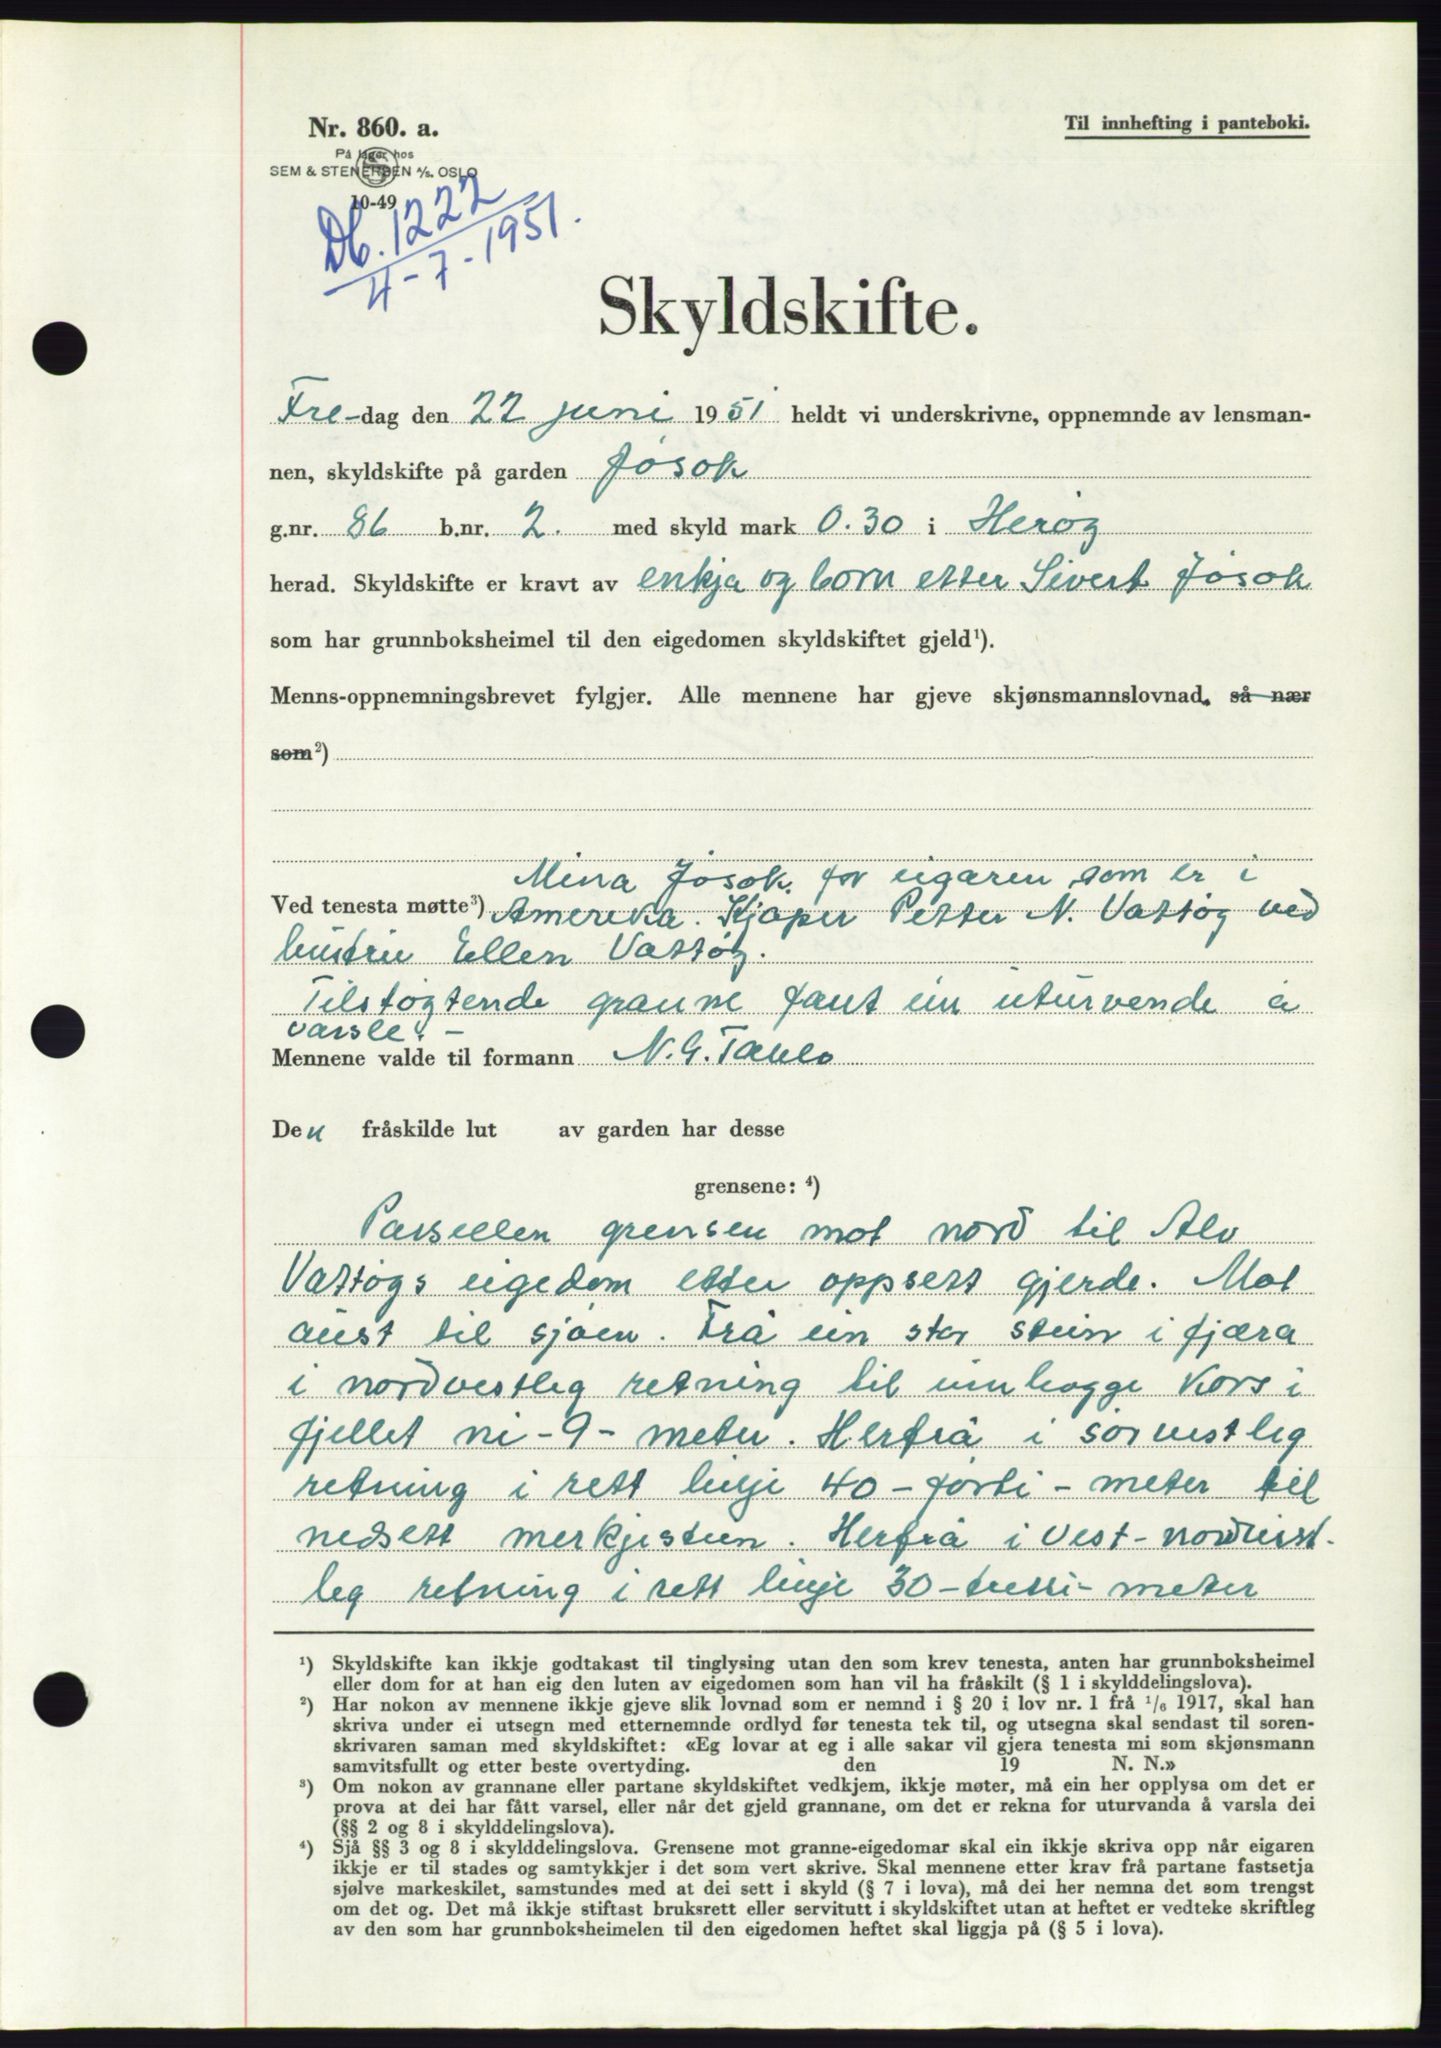 Nr. 860. a.
Til innhefting i panteboki.
På lager hos
SEM & STENERSEN A/S. OSLO
10-49
Db. 1222
4-7-1951.
Skyldskifte.
Fre-dag den 22 juni 1951 heldt vi underskrivne, oppnemnde av lensman-
nen, skyldskifte på garden Jøsok
g.nr. 86 b.nr. 2. med skyld mark 0.30 i Herøy
herad. Skyldskifte er kravt av enkja og born etter Sivert Jøsok
som har grunnboksheimel til den eigedomen skyldskiftet gjeld¹).
Menns-oppnemningsbrevet fylgjer. Alle mennene har gjeve skjønsmannslovnad, så nær
som²)
Mina Jøsok. for eigaren som er i
Ved tenesta møtte³) Amerika. Kjøper Petter N. Vattøy ved
hustru Ellen Vattøy.
Tilstøytende granne fant ein uturvende å
varsle. -
Mennene valde til formann N. G. Taulo
Den fråskilde lut av garden har desse
grensene: ⁴)
Parsellen grensen mot nord til Alv
Vattøys eigedom etter oppsett gjerde. Mot
aust til sjøen. Frå ein stor stein i fjæra
i nordvestleg retning til innhogge kors i
fjellet ni - 9 - meter. Herfrå i sørvestleg
retning i rett linje 40 - førti - meter til
nedsett merkjestein. Herfrå i vest-nordvest-
leg retning i rett linje 30 - tretti - meter
¹) Skyldskifte kan ikkje godtakast til tinglysing utan den som krev tenesta, anten har grunnboksheimel
eller dom for at han eig den luten av eigedomen som han vil ha fråskilt (§ 1 i skylddelingslova).
²) Har nokon av mennene ikkje gjeve slik lovnad som er nemnd i § 20 i lov nr. 1 frå ¹/₆ 1917, skal han
skriva under ei utsegn med etternemnde ordlyd før tenesta tek til, og utsegna skal sendast til soren-
skrivaren saman med skyldskiftet: «Eg lovar at eg i alle sakar vil gjera tenesta mi som skjønsmann
samvitsfullt og etter beste overtyding. den 19 N. N.»
³) Om nokon av grannane eller partane skyldskiftet vedkjem, ikkje møter, må ein her opplysa om det er
prova at dei har fått varsel, eller når det gjeld grannane, om det er rekna for uturvanda å varsla dei
(§§ 2 og 8 i skylddelingslova).
⁴) Sjå §§ 3 og 8 i skylddelingslova. Grensene mot granne-eigedomar skal ein ikkje skriva opp når eigaren
ikkje er til stades og samtykkjer i det som vert skrive. Skal mennene etter krav frå partane fastsetja
sjølve markeskilet, samstundes med at dei sett i skyld (§ 7 i lova), må dei her nemna det som trengst
om det og. Det må ikkje stiftast bruksrett eller servitutt i skyldskiftet utan at heftet er vedteke skriftleg
av den som har grunnboksheimelen til den eigedomen heftet skal liggja på (§ 5 i lova).